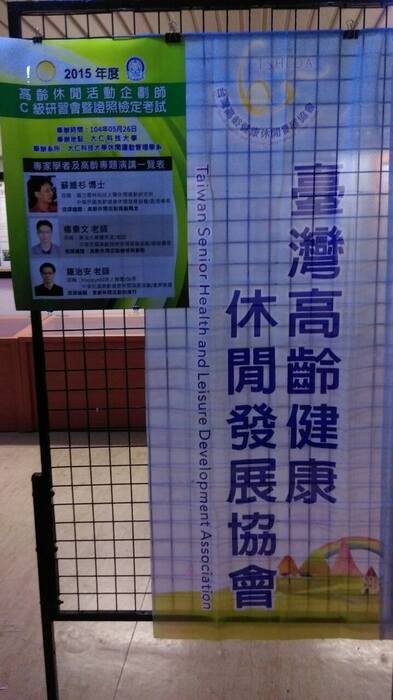 2015 年度
高齡休閒活動企劃師
C 級研習會暨證照檢定考試
舉辦時間：104年05月26日
舉辦地點：大仁科技大學
舉辦系所：大仁科技大學休閒運動管理學系
專家學者及高齡專題演講一覽表
蘇維杉 博士
楊景文 老師
羅治安 老師
臺灣高齡健康
休閒發展協會
Taiwan Senior Health and Leisure Development Association
台灣高齡健康休閒發展協會